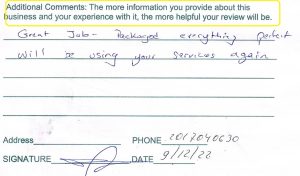 Additional Comments: The more information you provide about this
business and your experience with it, the more helpful your review will be.
Great Job - Packaged everything perfect
will be using your services again
Address
PHONE 2017040630
SIGNATURE DATE 9/12/22